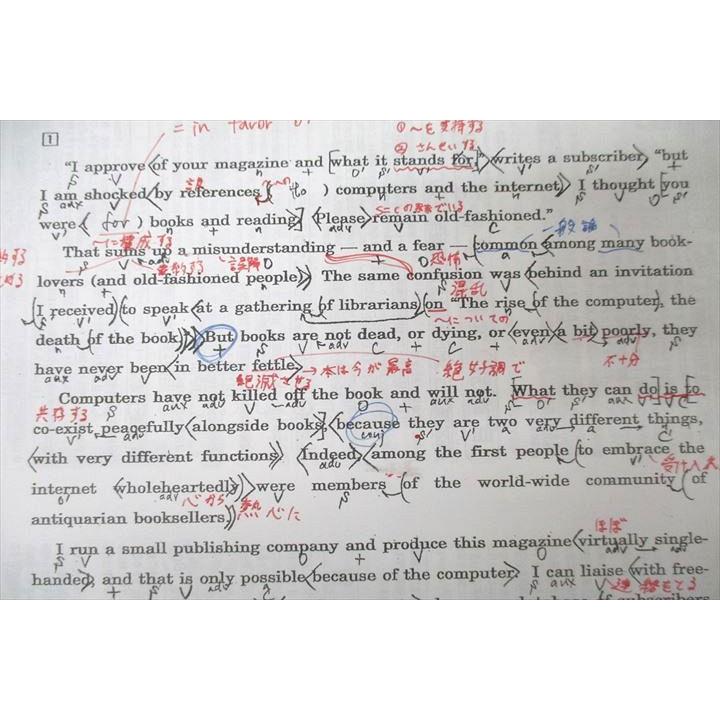 = in favor o
①〜を支持する
1
②さんせいする
"I approve of your magazine and [what it stands for]" writes a subscriber, "but
I am shocked by references ( to ) computers and the internet. I thought [you
were ( for ) books and reading]. Please remain old-fashioned."
〜に構成する
S=Cの状態でいる
一般論
That sums up a misunderstanding — and a fear — common among many book-
要約する 誤解
恐怖
lovers (and old-fashioned people). The same confusion was behind an invitation
混乱
[I received] to speak at a gathering of librarians on "The rise of the computer, the
〜についての
death of the book". But books are not dead, or dying, or even a bit poorly, they
不十分
have never been in better fettle.
→本は今が最高 絶好調で
絶滅させる
Computers have not killed off the book and will not. [What they can do] is to
共存する
co-exist peacefully alongside books, because they are two very different things,
conj
with very different functions. Indeed, among the first people to embrace the
受け入れ
internet (wholeheartedly) were members of the world-wide community of
心から
antiquarian booksellers.
熱心に
ほぼ
I run a small publishing company and produce this magazine virtually single-
handed, and that is only possible because of the computer. I can liaise with free-
連絡をとる